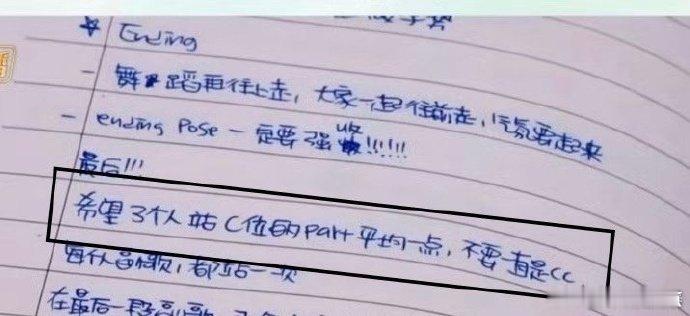 手势
☆ Ending
- 舞蹈再往上走，大家一起往前走，气氛要起来
- ending pose 一定要强收!!!!!
最后!!!
希望3个人站C位的part平均一点，不要一直是CC
每个人副歌，都站一次
在最后一段副歌